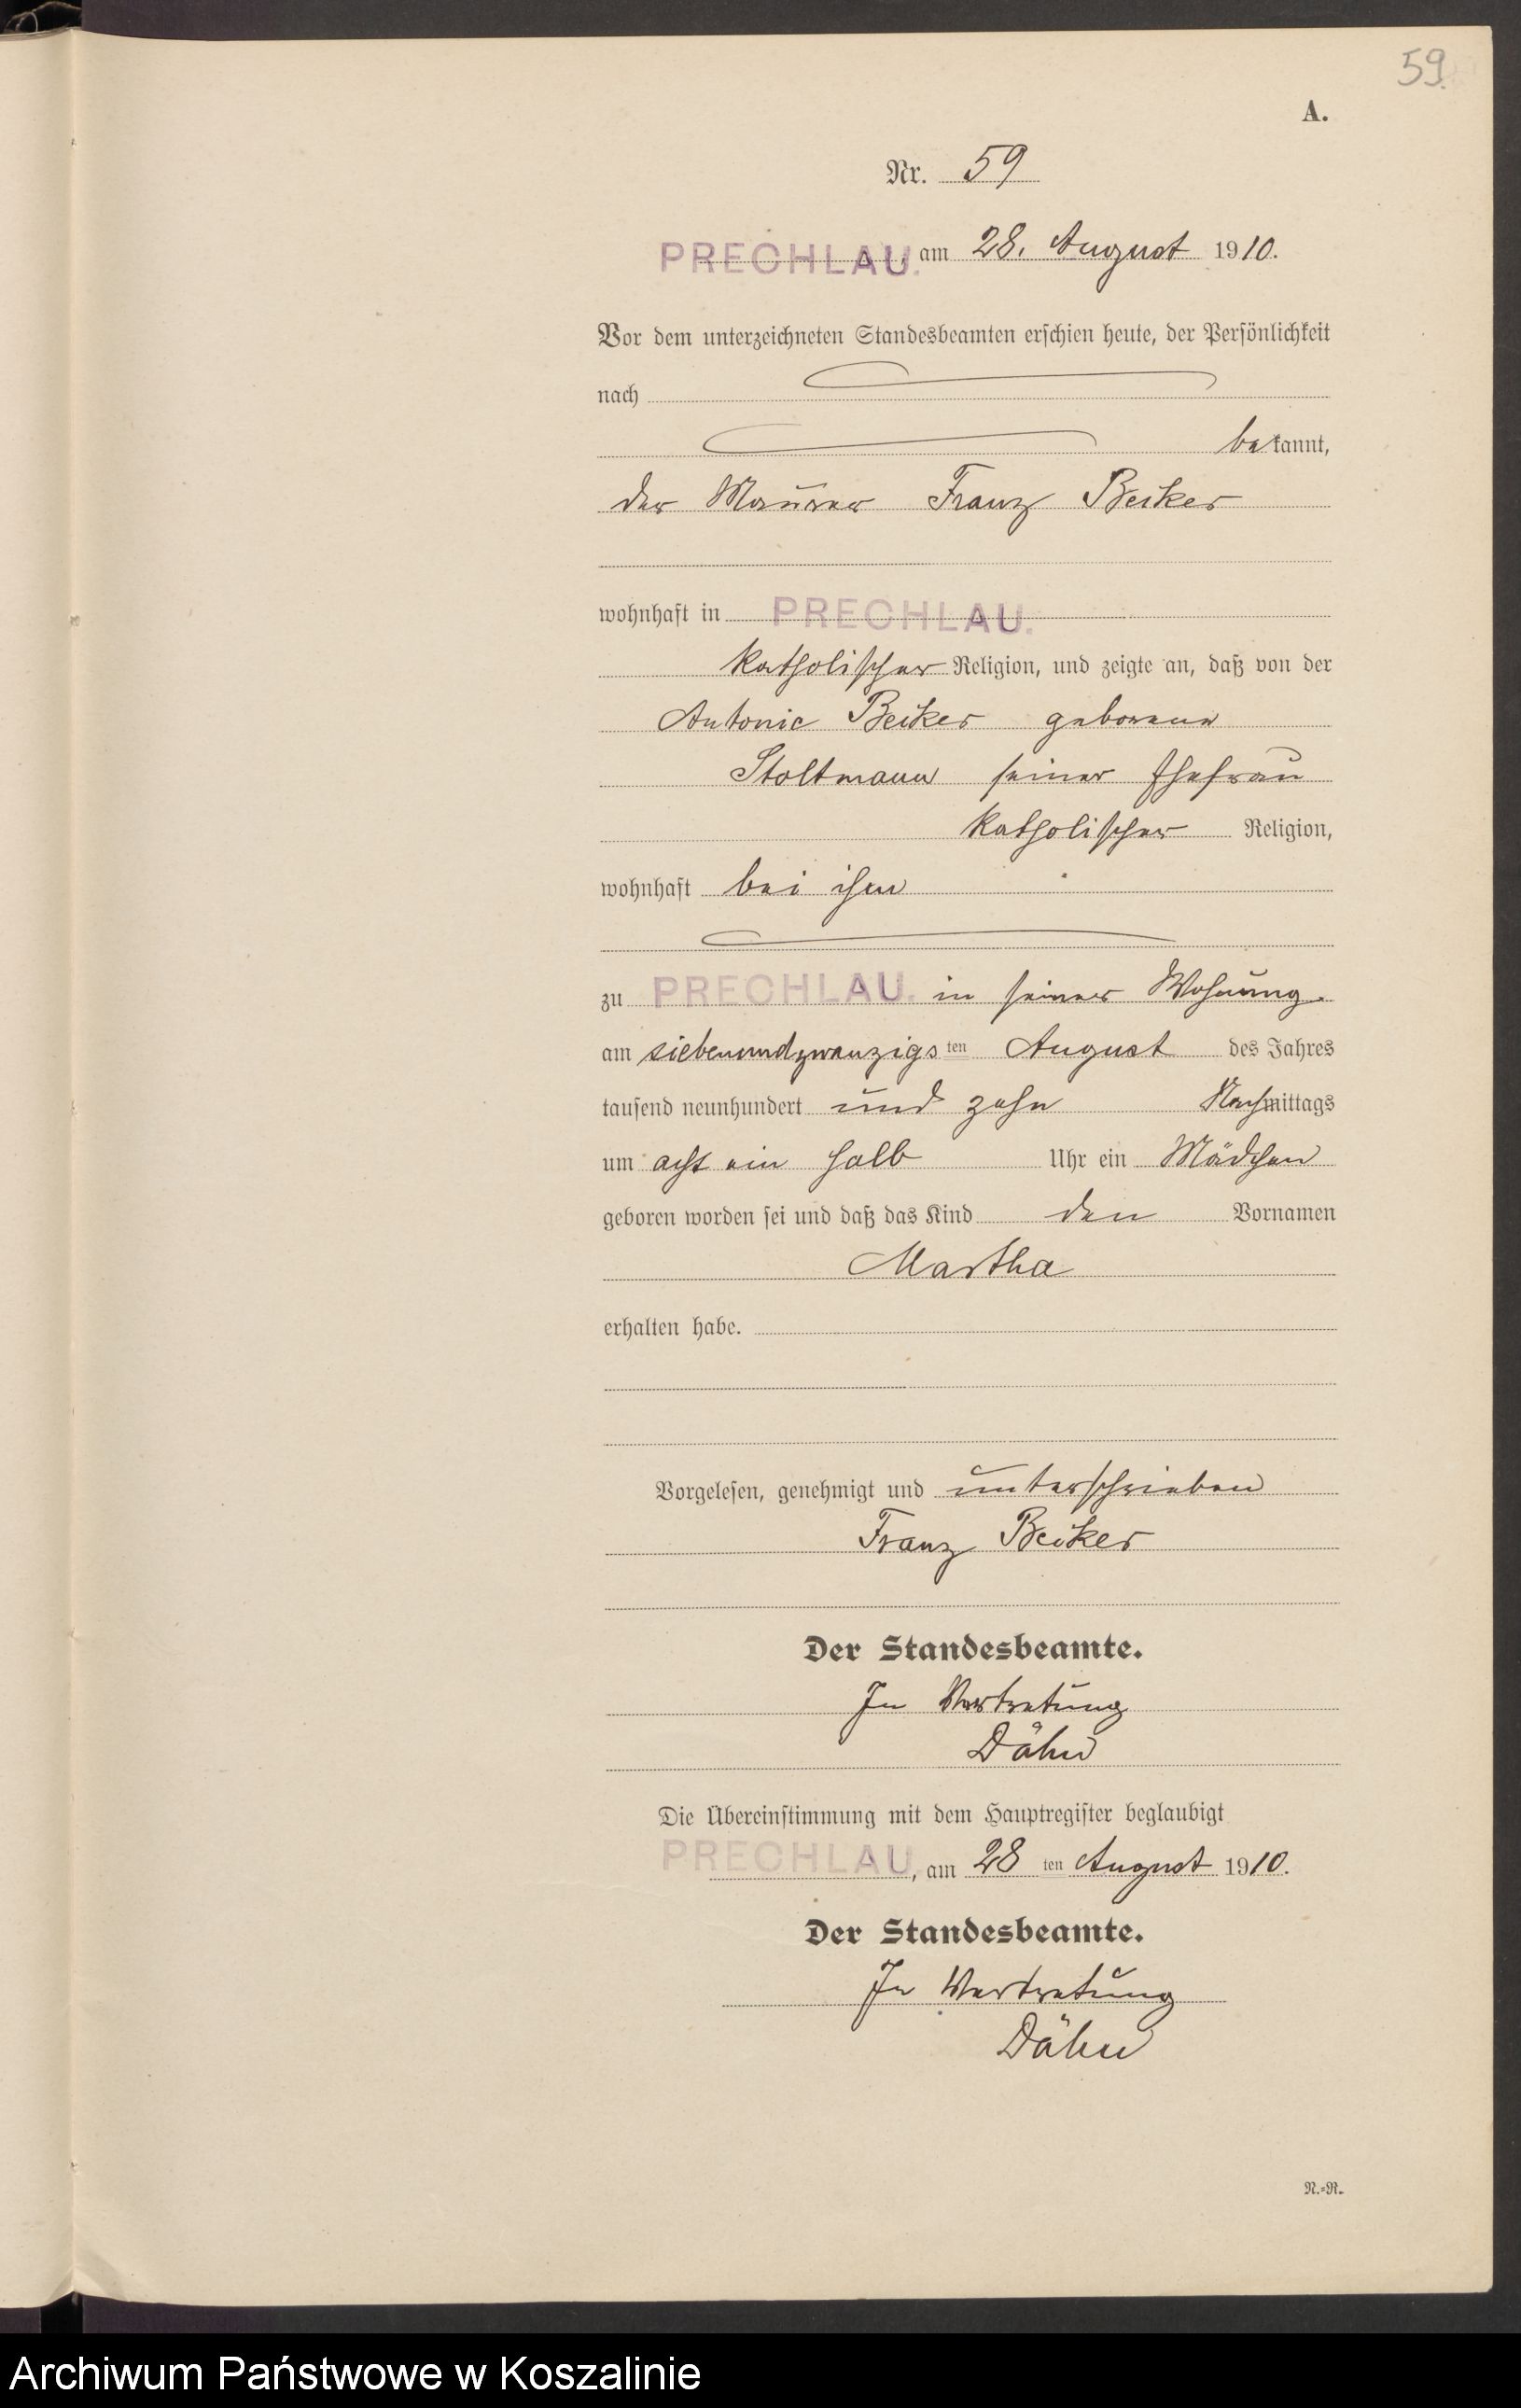 59.
A.
Nr. 59
PRECHLAU., am 28. August 1910.
Vor dem unterzeichneten Standesbeamten erschien heute, der Persönlichkeit
nach
bekannt,
der Maurer Franz Beiker
wohnhaft in PRECHLAU.
katholischer Religion, und zeigte an, daß von der
Antonie Beiker geborene
Stoltmann seiner Ehefrau
katholischer Religion,
wohnhaft bei ihm
zu PRECHLAU. in seiner Wohnung
am siebenundzwanzigsten August des Jahres
tausend neunhundert und zehn Nachmittags
um acht ein halb Uhr ein Mädchen
geboren worden sei und daß das Kind den Vornamen
Martha
erhalten habe.
Vorgelesen, genehmigt und unterschrieben
Franz Beiker
Der Standesbeamte.
In Vertretung
Dähn
Die Übereinstimmung mit dem Hauptregister beglaubigt
PRECHLAU, am 28 ten August 1910.
Der Standesbeamte.
In Vertretung
Dähn
N.=R.
Archiwum Państwowe w Koszalinie